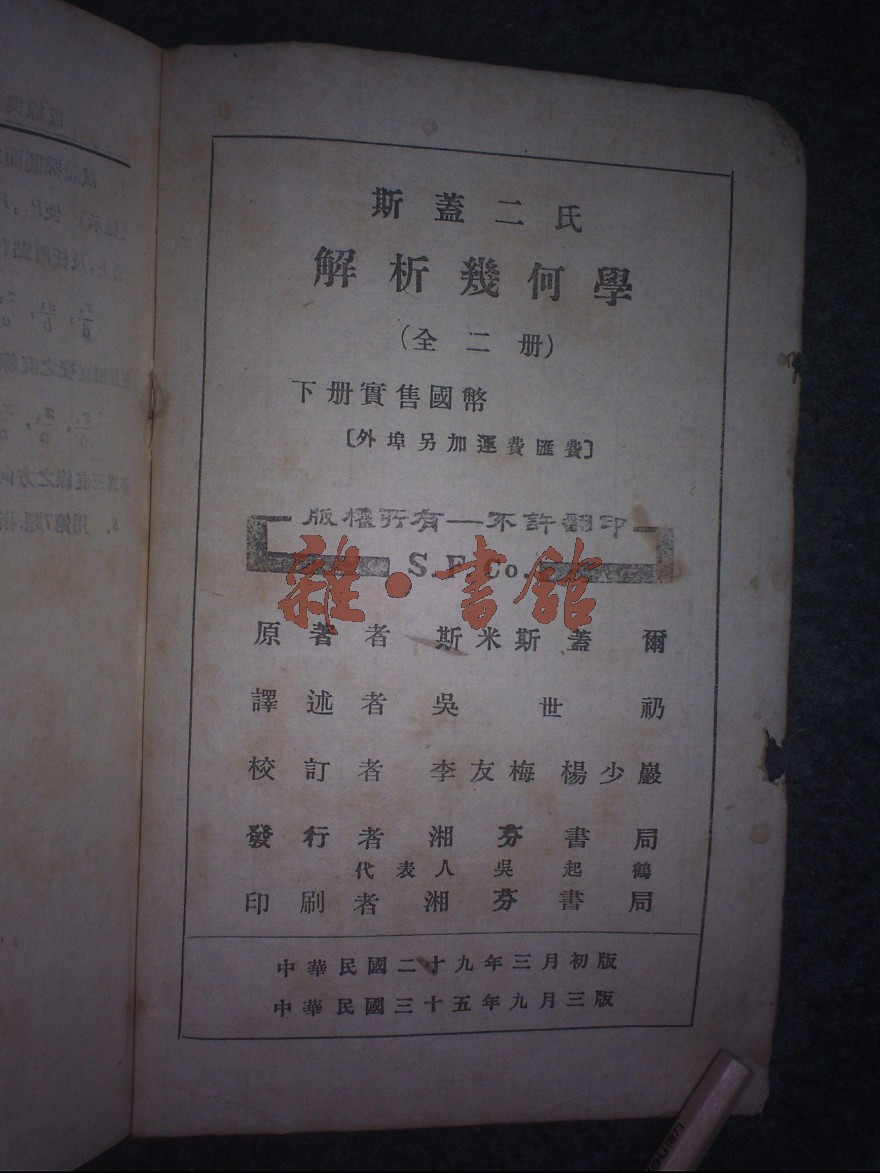 斯蓋二氏
解析幾何學
(全二册)
下册實售國幣
〔外埠另加運費匯費〕
版權所有—不許翻印
S. F. Co.
雜·書館
原著者 斯米斯蓋爾
譯述者 吳世礽
校訂者 李友梅 楊少巖
發行者 湘芬書局
代表人 吳起鶴
印刷者 湘芬書局
中華民國二十九年三月初版
中華民國三十五年九月三版